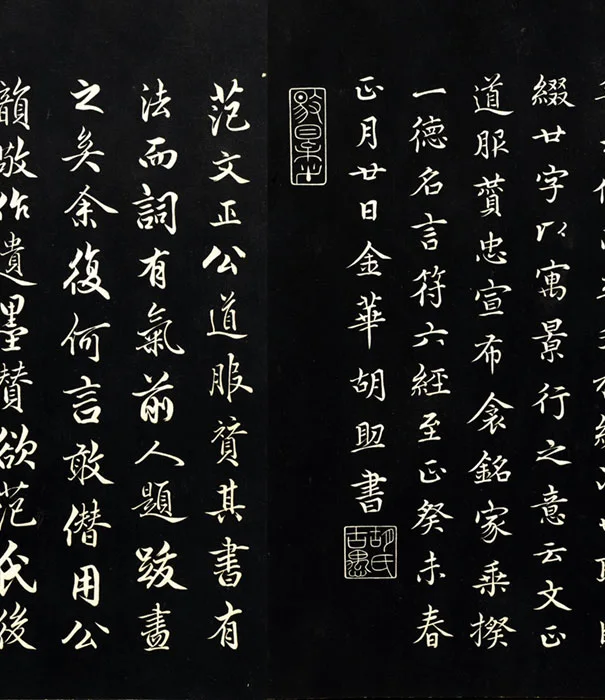 綴廿字以寓景行之意云文正
道服賛忠宣布衾銘家乘揆
一德名言符六經至正癸未春
正月廿日金華胡助書
胡氏古愚
范文正公道服賛其書有
法而詞有氣前人題跋盡
之矣余復何言敢僭用公
韻敬作遺墨賛欲范氏後